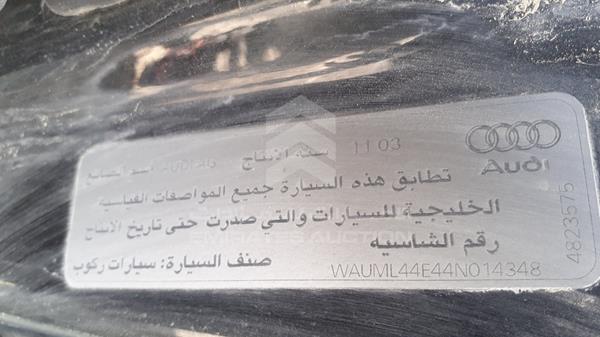 سنة الإنتاج 11 03
AUDI
تطابق هذه السيارة جميع المواصفات القياسية
الخليجية للسيارات والتي صدرت حتى تاريخ الانتاج
رقم الشاسيه
WAUML44E44N014348
صنف السيارة: سيارات ركوب
4823575